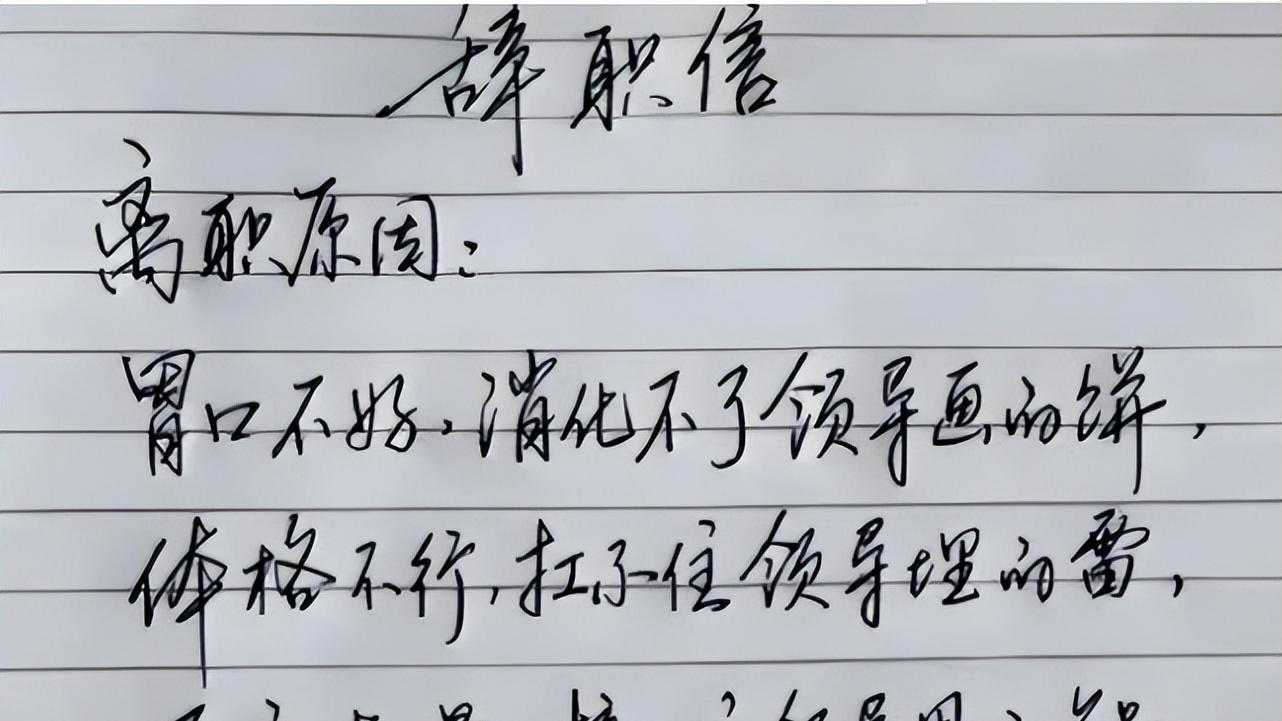 辞职信
离职原因:
胃口不好,消化不了领导画的饼,
体格不行,扛不住领导埋的雷,